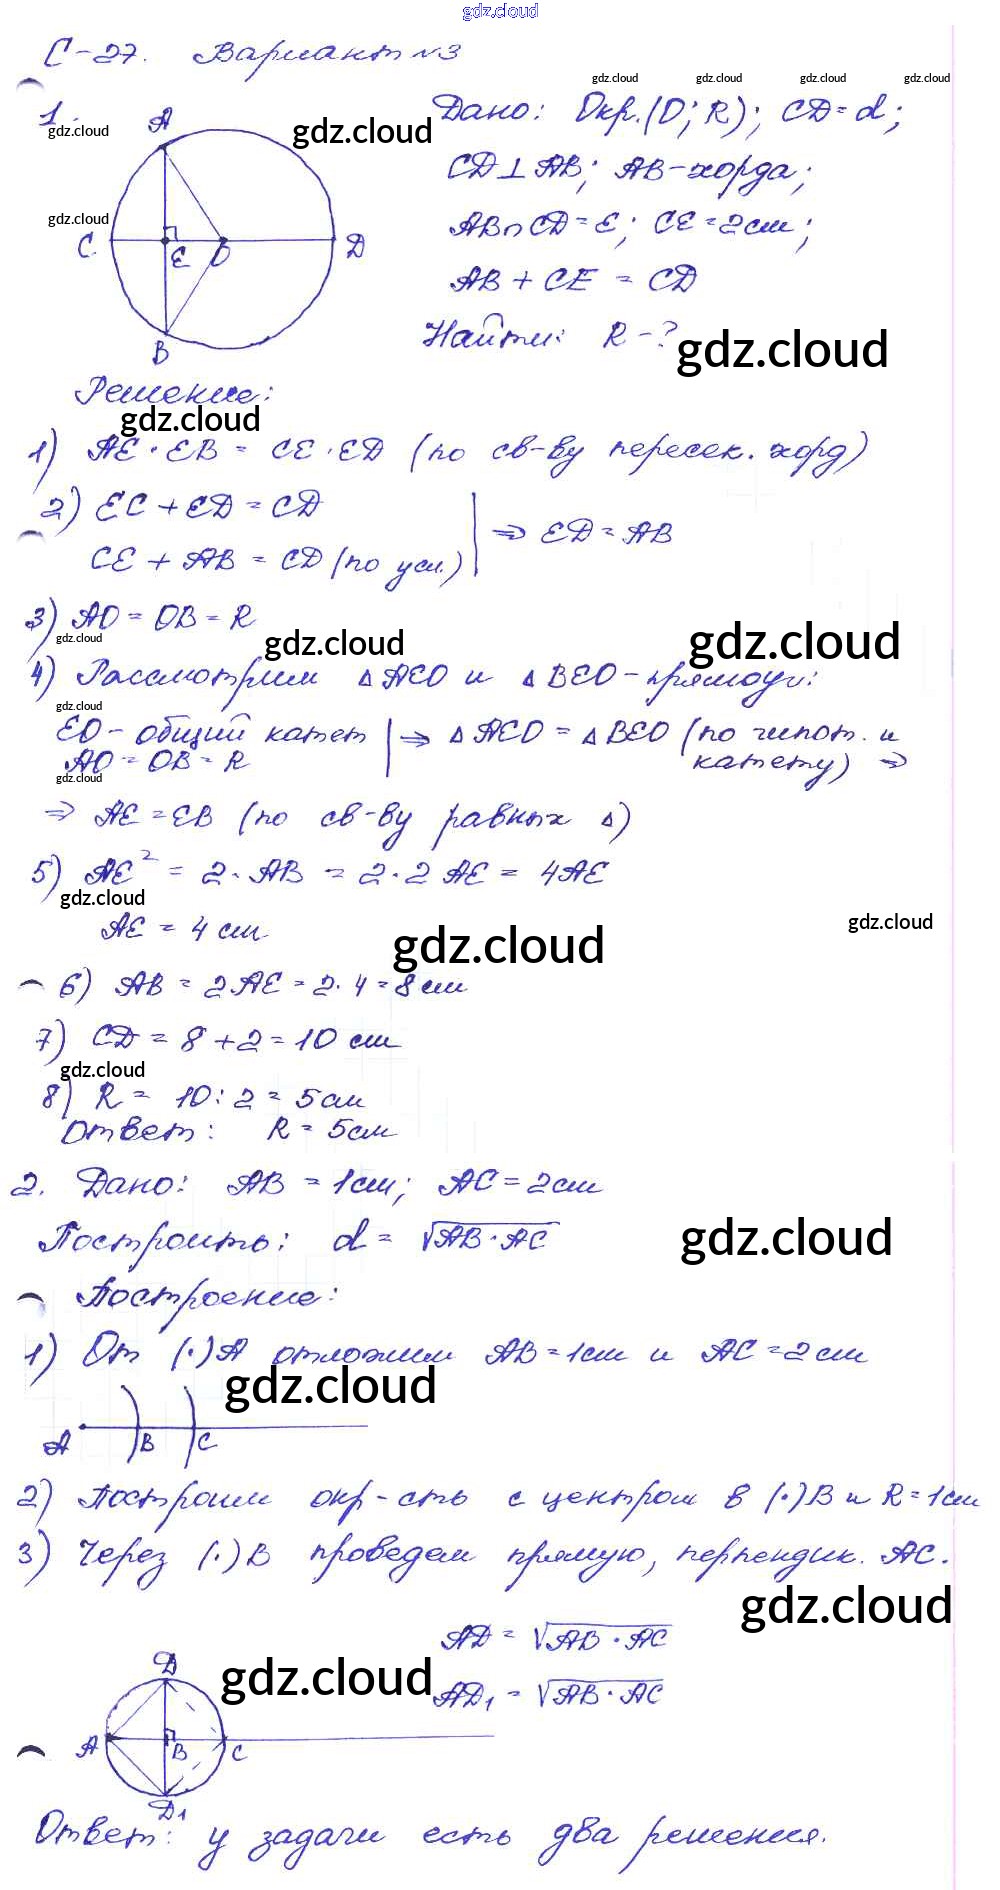 gdz.cloud
С-27. Вариант №3
gdz.cloud gdz.cloud gdz.cloud gdz.cloud
1.
Дано: Окр.(O; R); CD = d;
gdz.cloud
gdz.cloud
A
CD ⊥ AB; AB - хорда;
gdz.cloud
C E O D
AB ∩ CD = E; CE = 2 см;
AB + CE = CD
B
Найти: R - ?
gdz.cloud
Решение:
gdz.cloud
1) AE · EB = CE · ED (по св-ву пересек. хорд)
2) EC + ED = CD
CE + AB = CD (по усл.) | ⇒ ED = AB
3) AO = OB = R
gdz.cloud gdz.cloud gdz.cloud
4) Рассмотрим △AEO и △BEO - прямоуг:
gdz.cloud
EO - общий катет | ⇒ △AEO = △BEO (по гипот. и
AO = OB = R катету) ⇒
gdz.cloud
⇒ AE = EB (по св-ву равных △)
5) AE² = 2 · AB = 2 · 2 AE = 4AE
gdz.cloud
AE = 4 см
gdz.cloud
gdz.cloud
6) AB = 2AE = 2 · 4 = 8 см
7) CD = 8 + 2 = 10 см
gdz.cloud
8) R = 10 : 2 = 5 см
Ответ: R = 5 см
2. Дано: AB = 1 см; AC = 2 см
Построить: d = √AB · AC
gdz.cloud
Построение:
1) От (·) A отложим AB = 1 см и AC = 2 см
gdz.cloud
A B C
2) Построим окр-сть с центром в (·) B и R = 1 см
3) Через (·) B проведем прямую, перпендик. AC.
gdz.cloud
AD = √AB · AC
D
gdz.cloud
AD₁ = √AB · AC
A B C
D₁
Ответ: у задачи есть два решения.